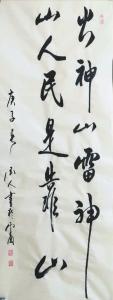 火神山雷神
山人民是靠山
庚子
人书于